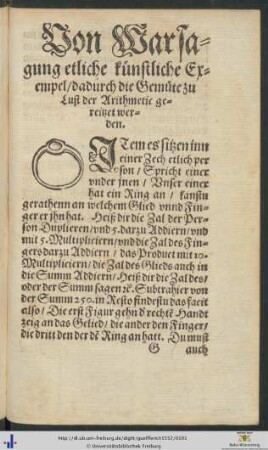 Von Warsa-
gung etliche künstliche Ex-
empel/dadurch die Gemüte zu
Lust der Arithmetic ge-
reitzet wer-
den.
ITem es sitzen inn
einer Zech etlich per
son/ Spricht einer
vnder jnen/ Vnser einer
hat ein Ring an/ kanstu
gerathenn an welchem Glied vnnd Fin-
ger er jhn hat. Heiß dir die Zal der Per-
son Duplieren/vnd 5. darzu Addiern/vnd
mit 5. Multipliciern/vnd die Zal des Fin-
gers darzu Addiern/ das Product mit 10
Multipliciern/die Zal des Glieds auch in
die Summ Addiern/Heiß dir die Zal des/
oder der Summ sagen ꝛc. Subtrahier von
der Summ 250. in Resto findestu das facit
also/ Die erst Figur gehn d rechtē Handt
zeig an das Gelied/ die ander den Finger/
die dritt den der dē Ring an hatt. Du must
G auch
http://dl.ub.uni-freiburg.de/diglit/
© Universitätsbibliothek Freiburg
Baden-Württemberg